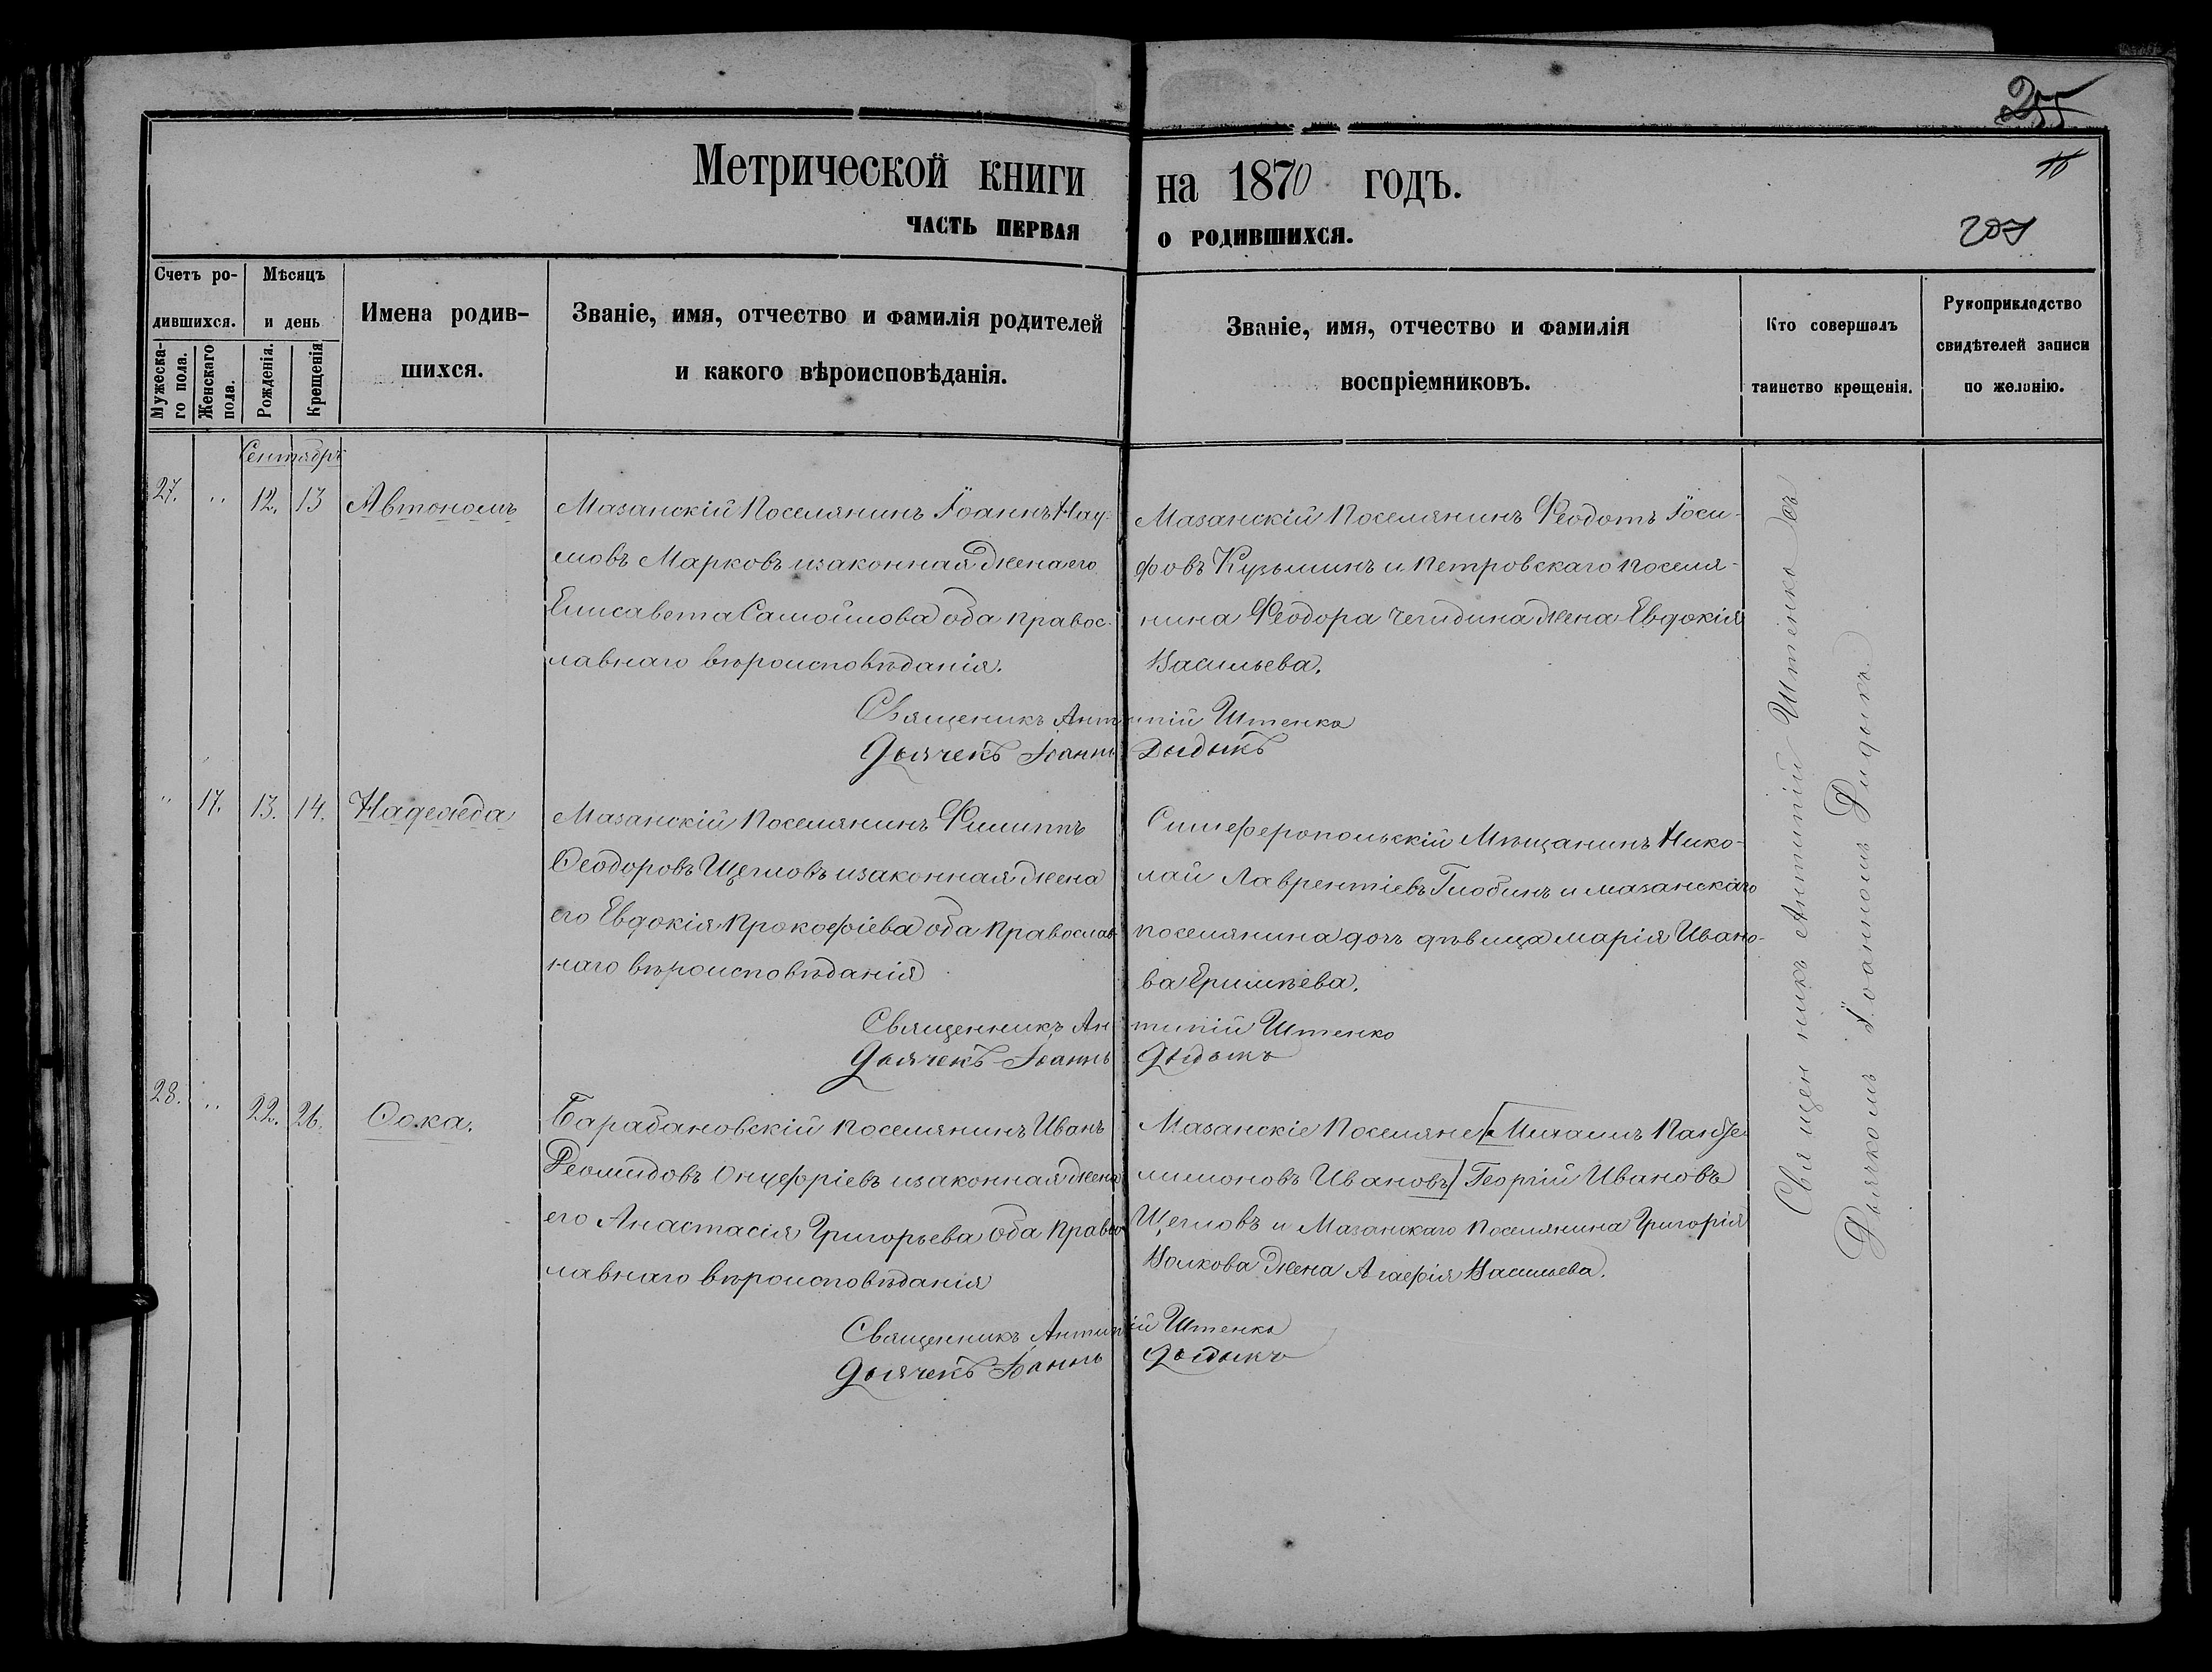 255
16
207
Метрической книги на 1870 годъ.
часть первая о родившихся.
Счетъ родившихся.
Мужескаго пола.
Женскаго пола.
Мѣсяцъ и день
Рожденія.
Крещенія
Имена родившихся.
Званіе, имя, отчество и фамилія родителей
и какого вѣроисповѣданія.
Званіе, имя, отчество и фамилія
воспріемниковъ.
Кто совершалъ
таинство крещенія.
Рукоприкладство
свидѣтелей записи
по желанію.
Сентябрь
27. " 12. 13 Автономъ
Мазанскій Поселянинъ Іоаннъ Нау-
мовъ Марковъ и законная жена его
Елисавета Самойлова оба правос-
лавнаго вѣроисповѣданія.
Мазанскій Поселянинъ Феодотъ Іоси-
фовъ Кузьминъ и Петровскаго поселя-
нина Феодора жена Евдокія
Васильева.
Священикъ Антипій Штенко
Дьячекъ Іоаннъ Дыдыкъ
" 17. 13. 14. Надежда
Мазанскій Поселянинъ Филиппъ
Ѳеодоровъ Щегловъ и законная жена
его Евдокія Прокофіева оба Православ-
наго вѣроисповѣданія
Симферопольскій Мѣщанинъ Нико-
лай Лаврентіевъ Глобинъ и мазанскаго
поселянина дочь дѣвица Марія Ивано-
ва Ермилѣева.
Священникъ Антипій Штенко
Дьячекъ Іоаннъ Дыдыкъ
28. " 22. 26. Ѳока.
Барабановскій поселянинъ Иванъ
Деомидовъ Онуфріевъ и законная жена
его Анастасія Григорьева оба Правос-
лавнаго вѣроисповѣданія
Мазанскіе Поселяне [Михаилъ Панте-
лимоновъ Ивановъ] Георгій Ивановъ
Щегловъ и Мазанскаго поселянина Григорія
Волкова жена Агафія Васильева.
Священникъ Антипій Штенко
Дьячекъ Іоаннъ Дыдыкъ
Священникъ Антипій Штенко съ
Дьячкомъ Іоанномъ Дидыкъ.